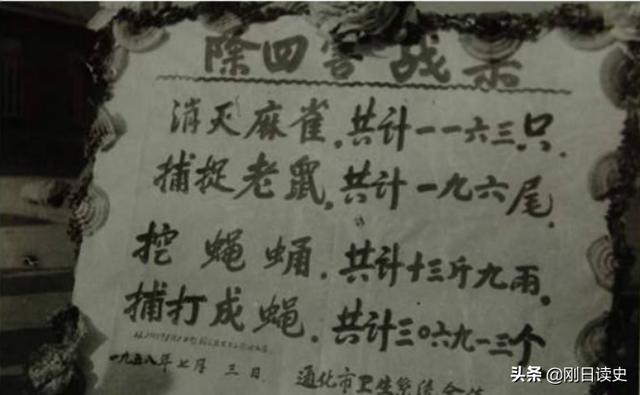 除四害战果
消灭麻雀,共计一一六三只.
捕捉老鼠,共计一九六尾.
挖蝇蛹,共计十三斤九两。
捕打成蝇.共计三〇六九一三个
一九五八年七月三日
通化市卫生系统
头条 @刚日读史